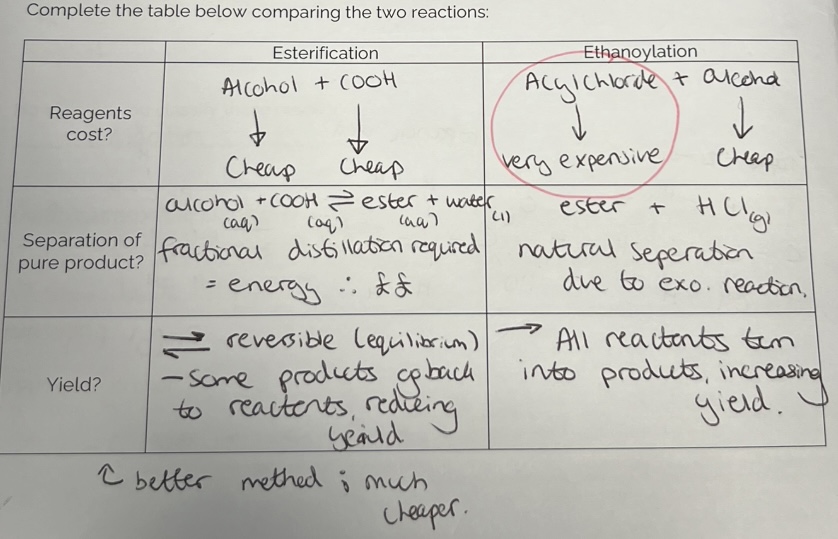 Complete the table below comparing the two reactions:
Esterification
Ethanoylation
Reagents
cost?
Alcohol + COOH
↓ ↓
Cheap Cheap
Acylchloride + alcohol
↓ ↓
very expensive Cheap
Separation of
pure product?
alcohol + COOH ⇌ ester + water
(aq) (aq) (aq) (l)
fractional distillation required
= energy ∴ ££
ester + HCl(g)
natural seperation
due to exo. reaction.
Yield?
⇌ reversible (equilibrium)
- some products go back
to reactents, reducing
yeild
→ All reactents turn
into products, increasing
yield.
↑ better method ; much
cheaper.